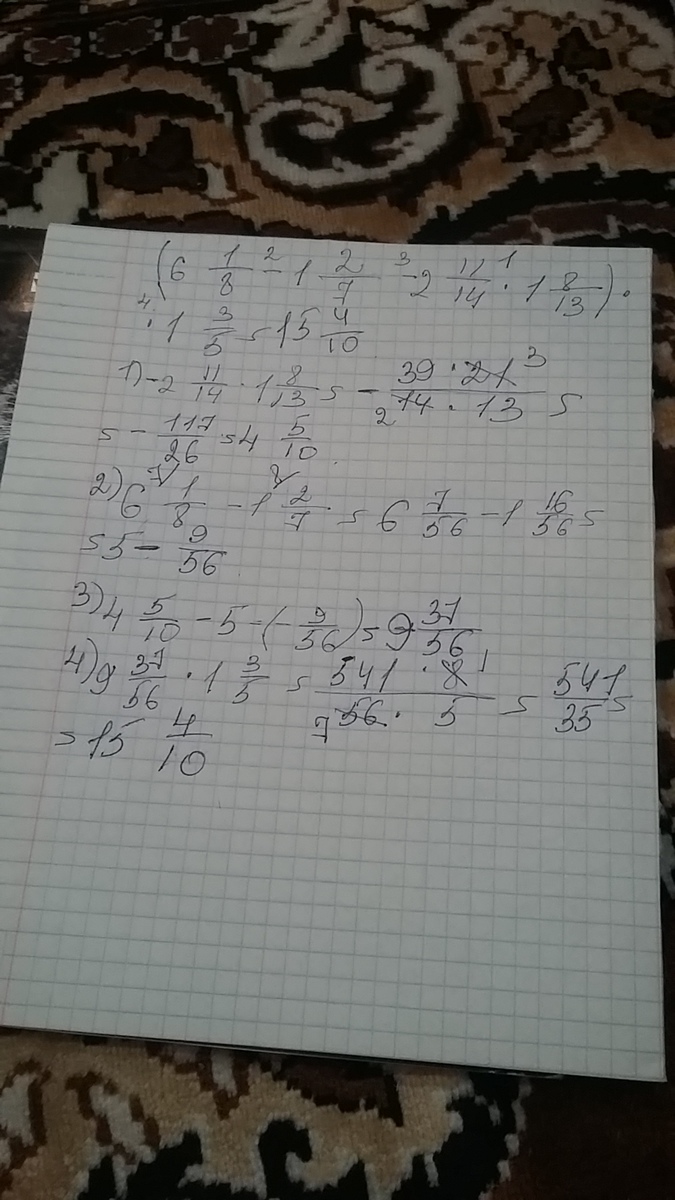 (6 1/8 -² 1 2/7 -³ 2 11/14 ·¹ 1 8/13) ·
⁴· 1 3/5 = 15 4/10
1) -2 11/14 · 1 8/13 = - 39 · 21 3 / 2 14 · 13 =
= - 117/26 = 4 5/10
2) 6 1/8 - 1 2/7 = 6 7/56 - 1 16/56 =
= 5 - 9/56
3) 4 5/10 - 5 - (- 9/56) = 9 37/56
4) 9 37/56 · 1 3/5 = 541 · 8 1 / 7 56 · 5 = 541/35 =
= 15 4/10